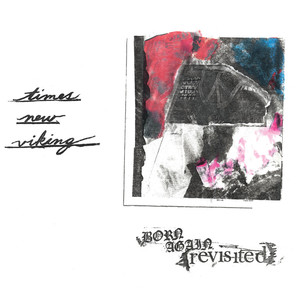 times
new
viking
BORN
AGAIN
revisited